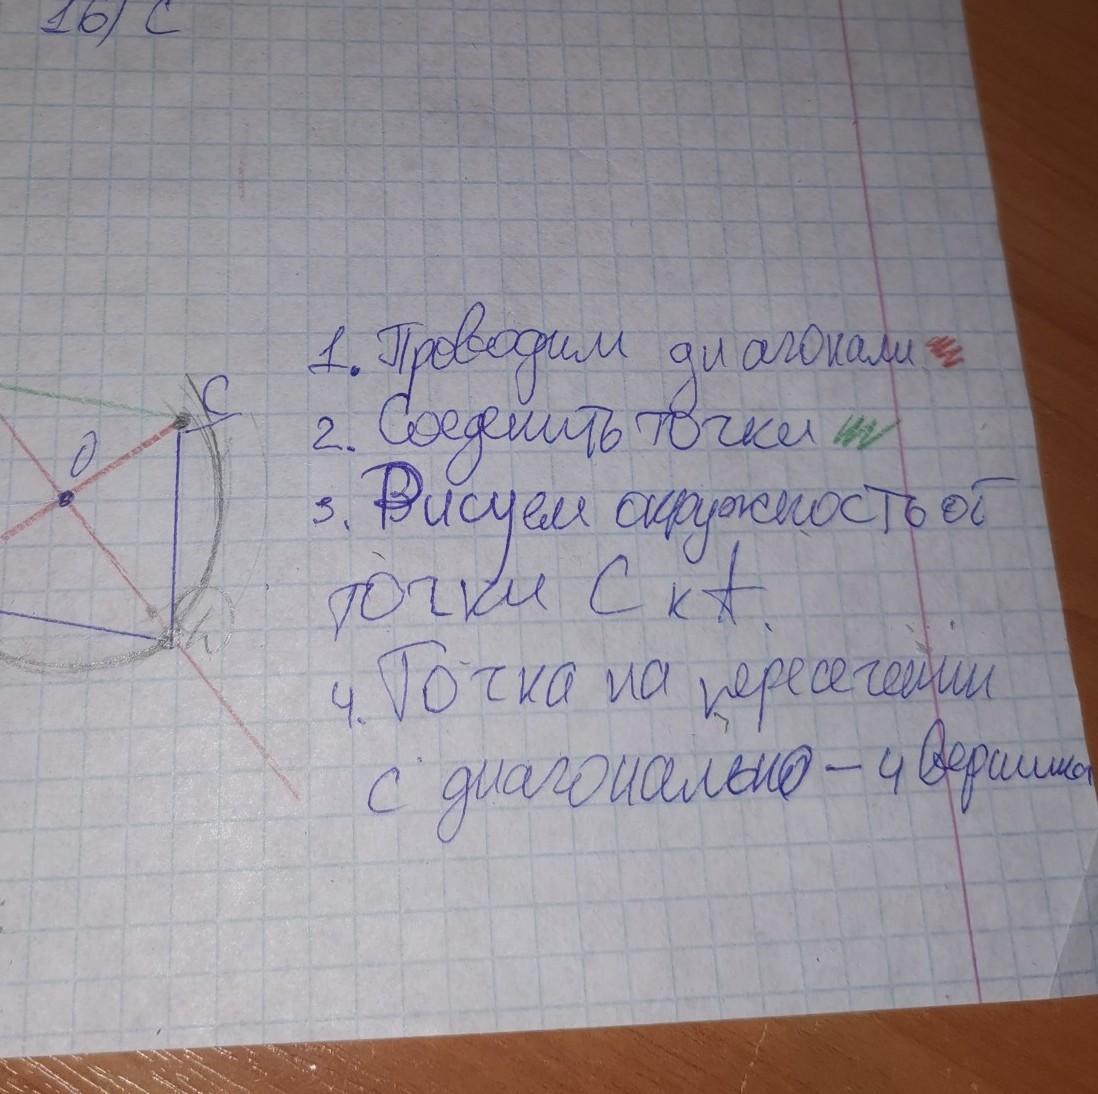 16) C
C
O
1. Проводим диагонали
2. Соеденить точки
3. Рисуем окружность от
точки C к A.
4. Точка на пересечении
с диагональю – 4 вершина